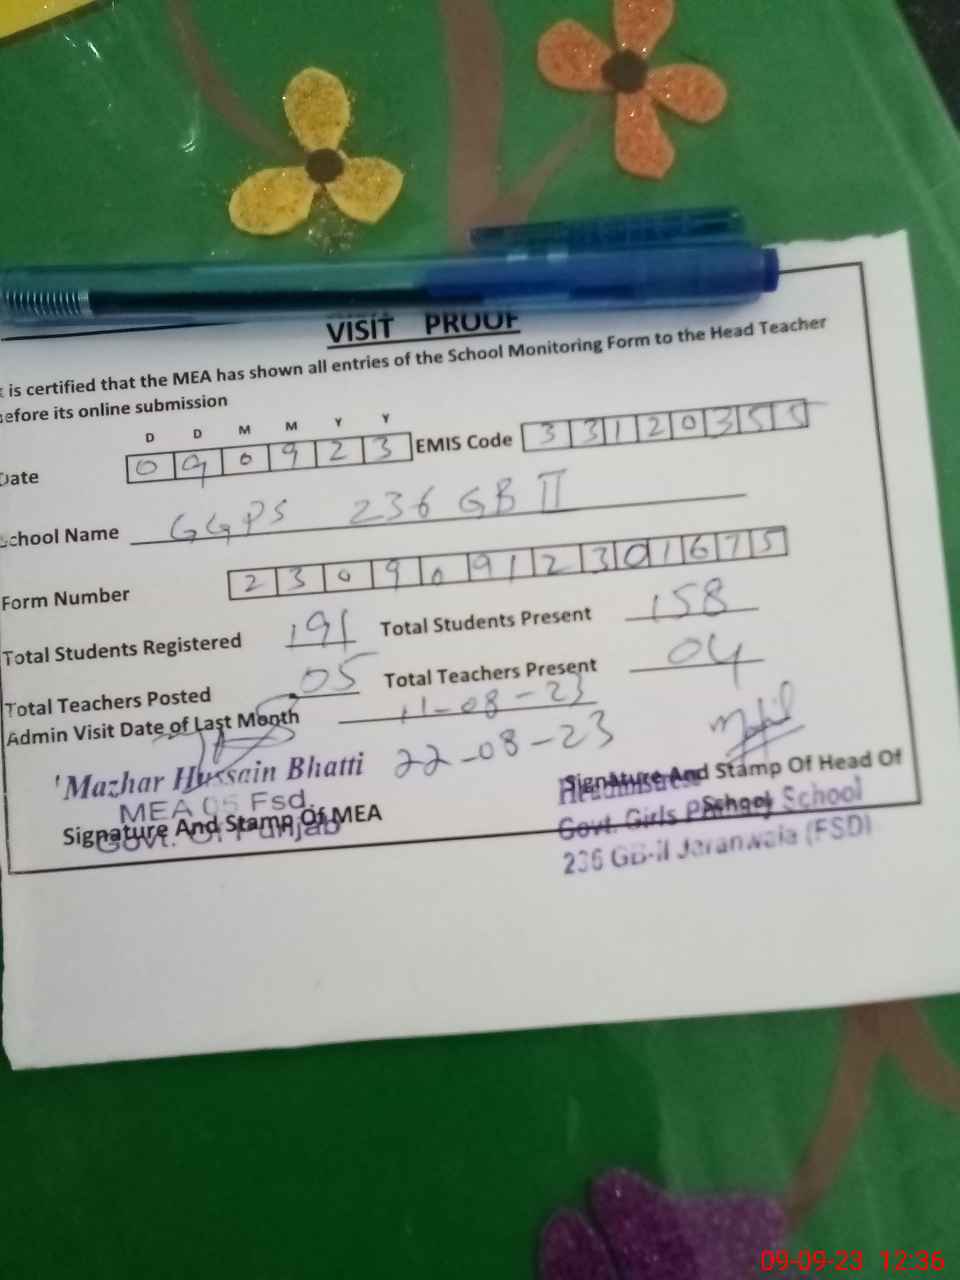 VISIT PROOF
is certified that the MEA has shown all entries of the School Monitoring Form to the Head Teacher
before its online submission
D D M M Y Y
Date 0 9 0 9 2 3 EMIS Code 3 3 1 2 0 3 5 5
School Name GGPS 236 GB II
Form Number 2 3 0 9 0 9 1 2 3 0 1 6 7 5
Total Students Registered 191 Total Students Present 158
Total Teachers Posted 05 Total Teachers Present 04
Admin Visit Date of Last Month 11-08-23
22-08-23
Mazhar Hussain Bhatti
MEA 05 Fsd.
Govt. Of Punjab
Signature And Stamp Of MEA
Signature And Stamp Of Head Of
School
Headmistress
Govt. Girls Primary School
236 GB-II Jaranwala (FSD)
09-09-23 12:36